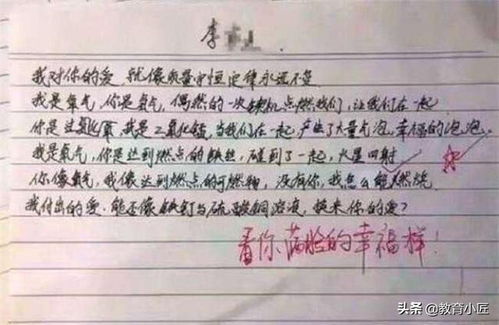 李
我对你的爱 就像质量守恒定律永远不变
我是氧气，你是氢气，偶然的一次契机点燃我们，让我们在一起
你是过氧化氢 我是二氧化锰，当我们在一起 产生了大量气泡，幸福的泡泡
我是氧气，你是达到燃点的铁丝，碰到了一起，火星四射
你像氧气，我像达到燃点的可燃物，没有你，我怎么能燃烧
我付出的爱，能否像铁钉与硫酸铜溶液，换来你的爱？
看你满脸的幸福样！
头条 @教育小匠